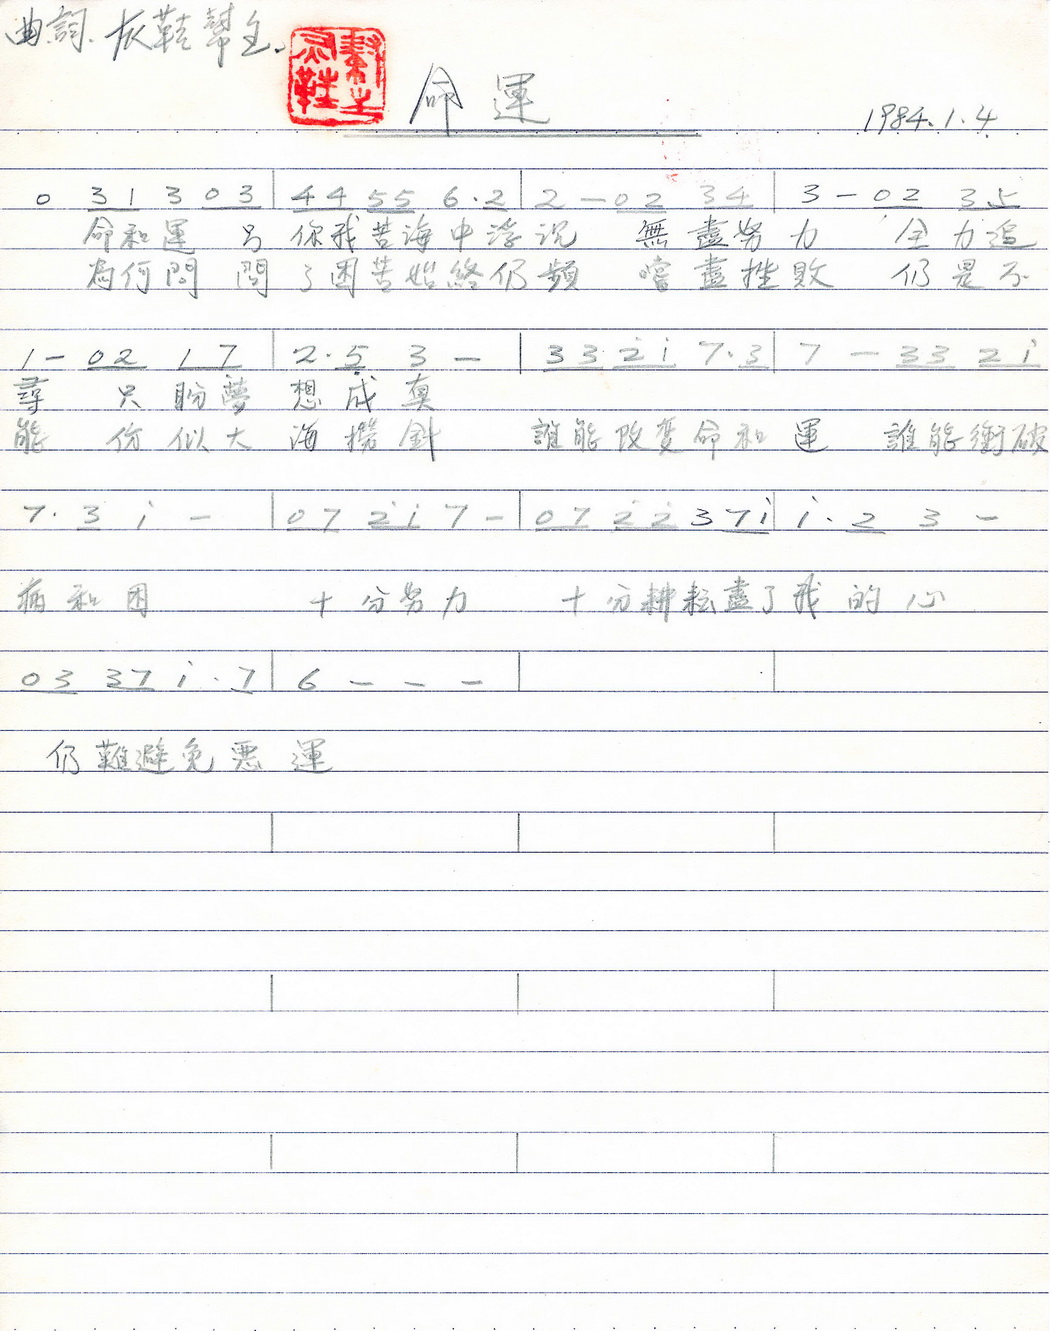 曲詞．灰鞋幫主．
灰鞋幫主
命運
1984.1.4
0 31 3 03 | 44 55 6·2 | 2 - 02 34 | 3 - 02 35
命和運 另 你我苦海中浮沉 無盡努力 全力追
為何問 問了困苦始終仍頻 嚐盡挫敗 仍是不
1 - 02 17 | 2·5 3 - | 33 2i 7·3 | 7 - 33 2i
尋 只盼夢想成真
能 份似大海撈針 誰能改變命和運 誰能衝破
7·3 i - | 07 2i 7 - | 07 22 37i | i·2 3 -
病和困 十分努力 十分耕耘盡了我的心
03 37 i·7 | 6 - - - |
仍難避免惡運